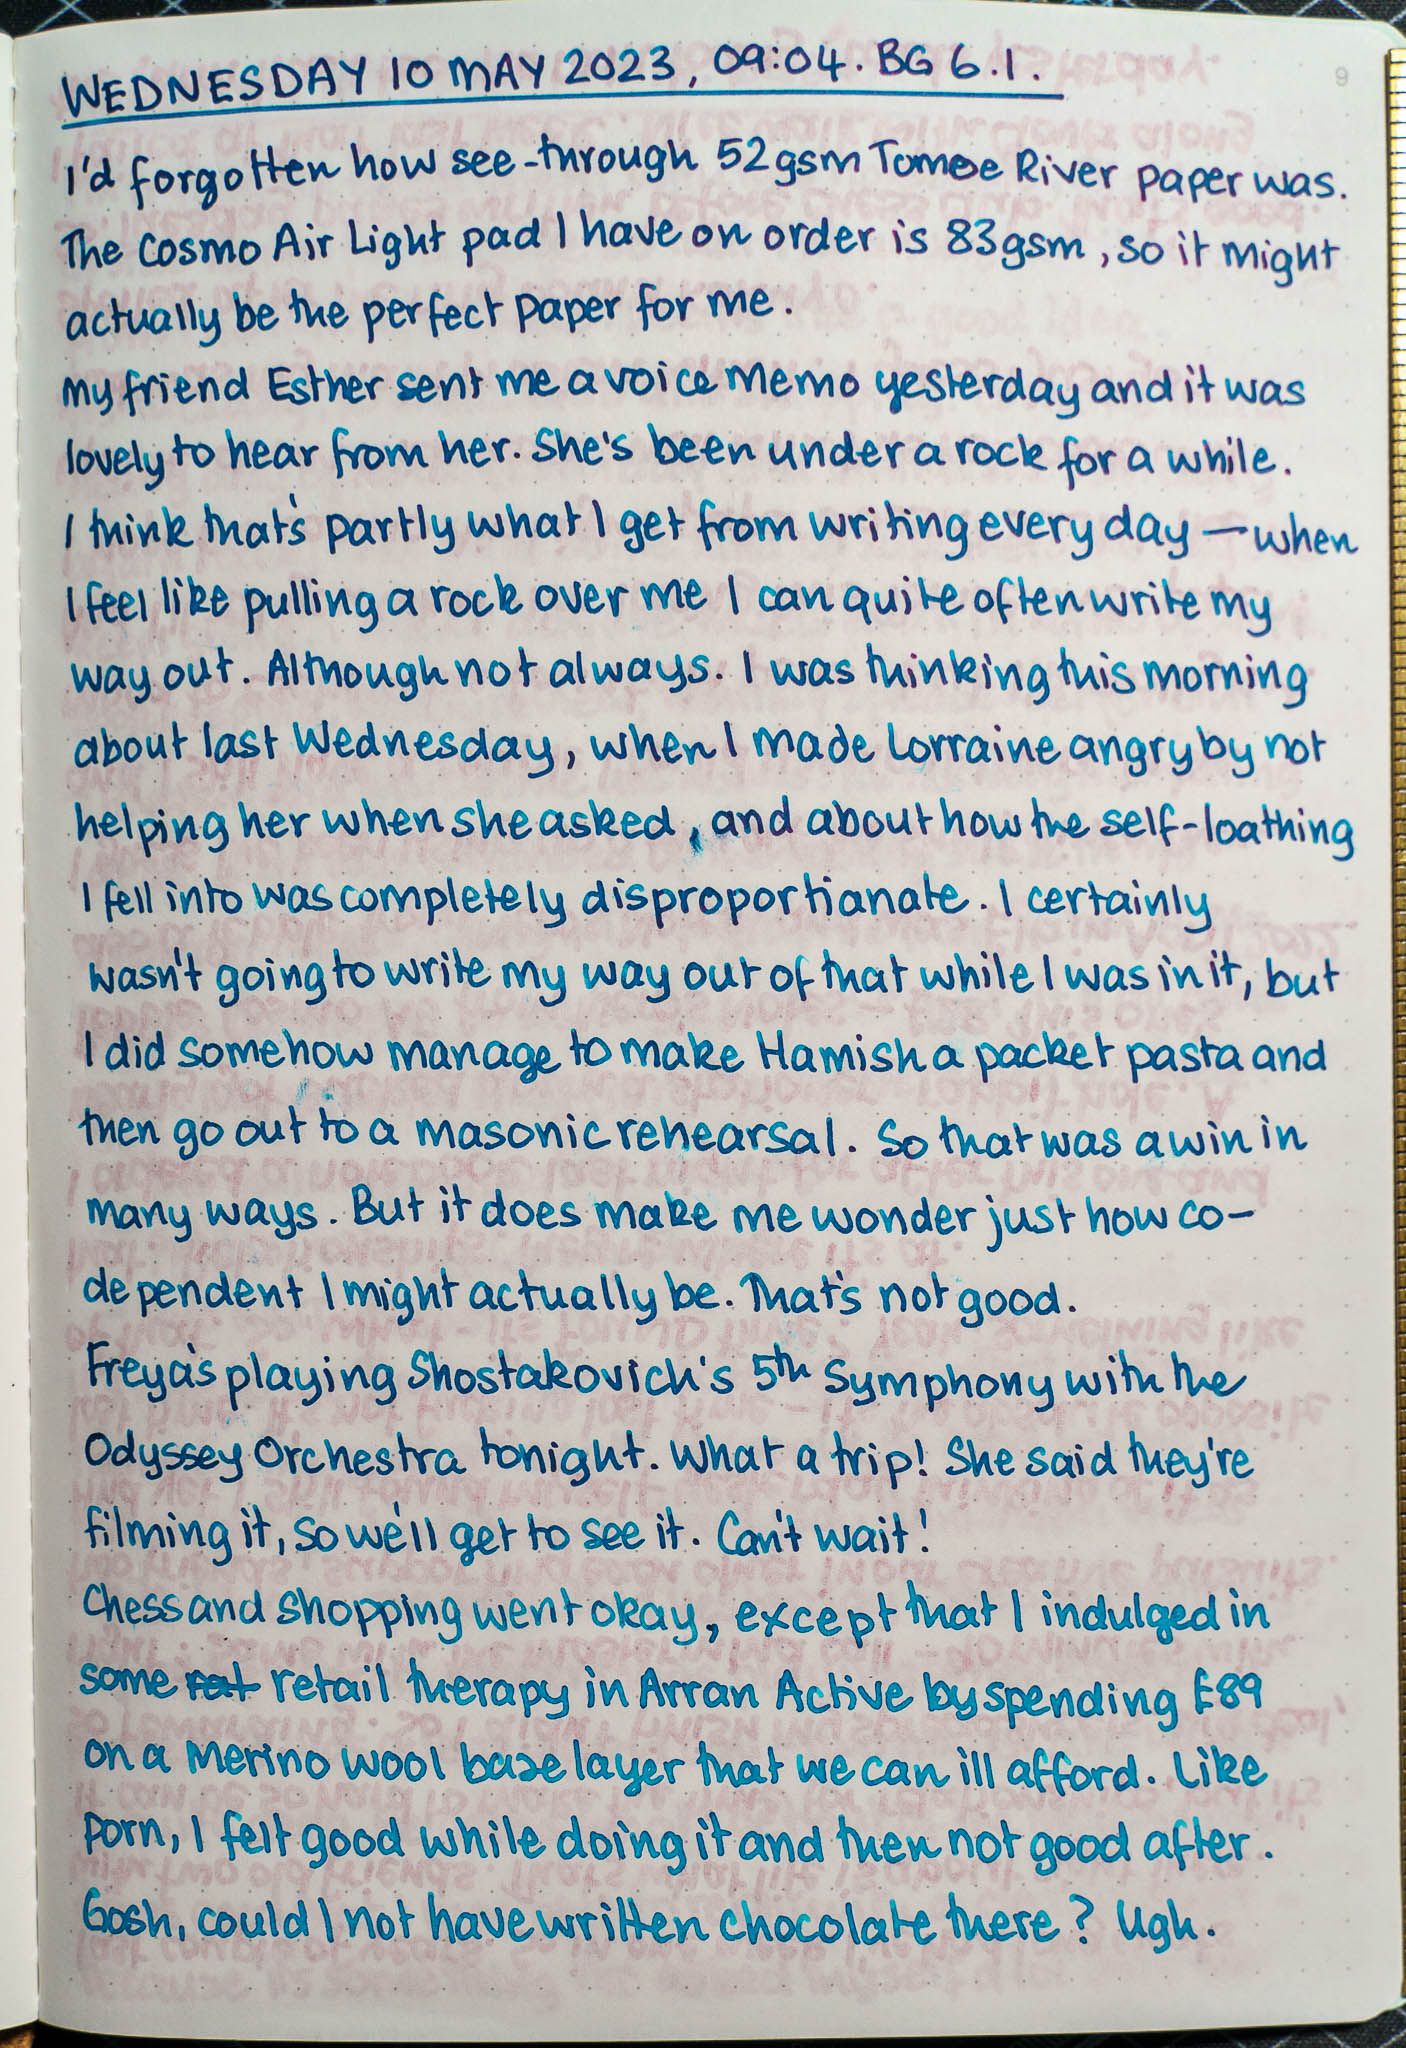 WEDNESDAY 10 MAY 2023, 09:04. BG 6.1.
9
I'd forgotten how see-through 52gsm Tomoe River paper was.
The Cosmo Air Light pad I have on order is 83gsm, so it might
actually be the perfect paper for me.
My friend Esther sent me a voice memo yesterday and it was
lovely to hear from her. She's been under a rock for a while.
I think that's partly what I get from writing every day — when
I feel like pulling a rock over me I can quite often write my
way out. Although not always. I was thinking this morning
about last Wednesday, when I made Lorraine angry by not
helping her when she asked, and about how the self-loathing
I fell into was completely disproportianate. I certainly
wasn't going to write my way out of that while I was in it, but
I did somehow manage to make Hamish a packet pasta and
then go out to a masonic rehearsal. So that was a win in
many ways. But it does make me wonder just how co-
dependent I might actually be. That's not good.
Freya's playing Shostakovich's 5th Symphony with the
Odyssey Orchestra tonight. What a trip! She said they're
filming it, so we'll get to see it. Can't wait!
Chess and shopping went okay, except that I indulged in
some rat retail therapy in Arran Active by spending £89
on a merino wool base layer that we can ill afford. Like
porn, I felt good while doing it and then not good after.
Gosh, could I not have written chocolate there? Ugh.